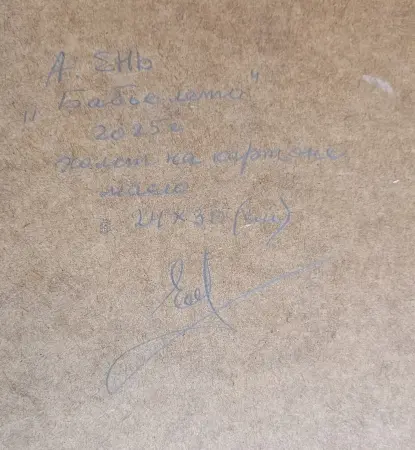 А. ЕНЬ
„Бабье лето"
2025г
холст на картоне
масло
24 х 30 (см)